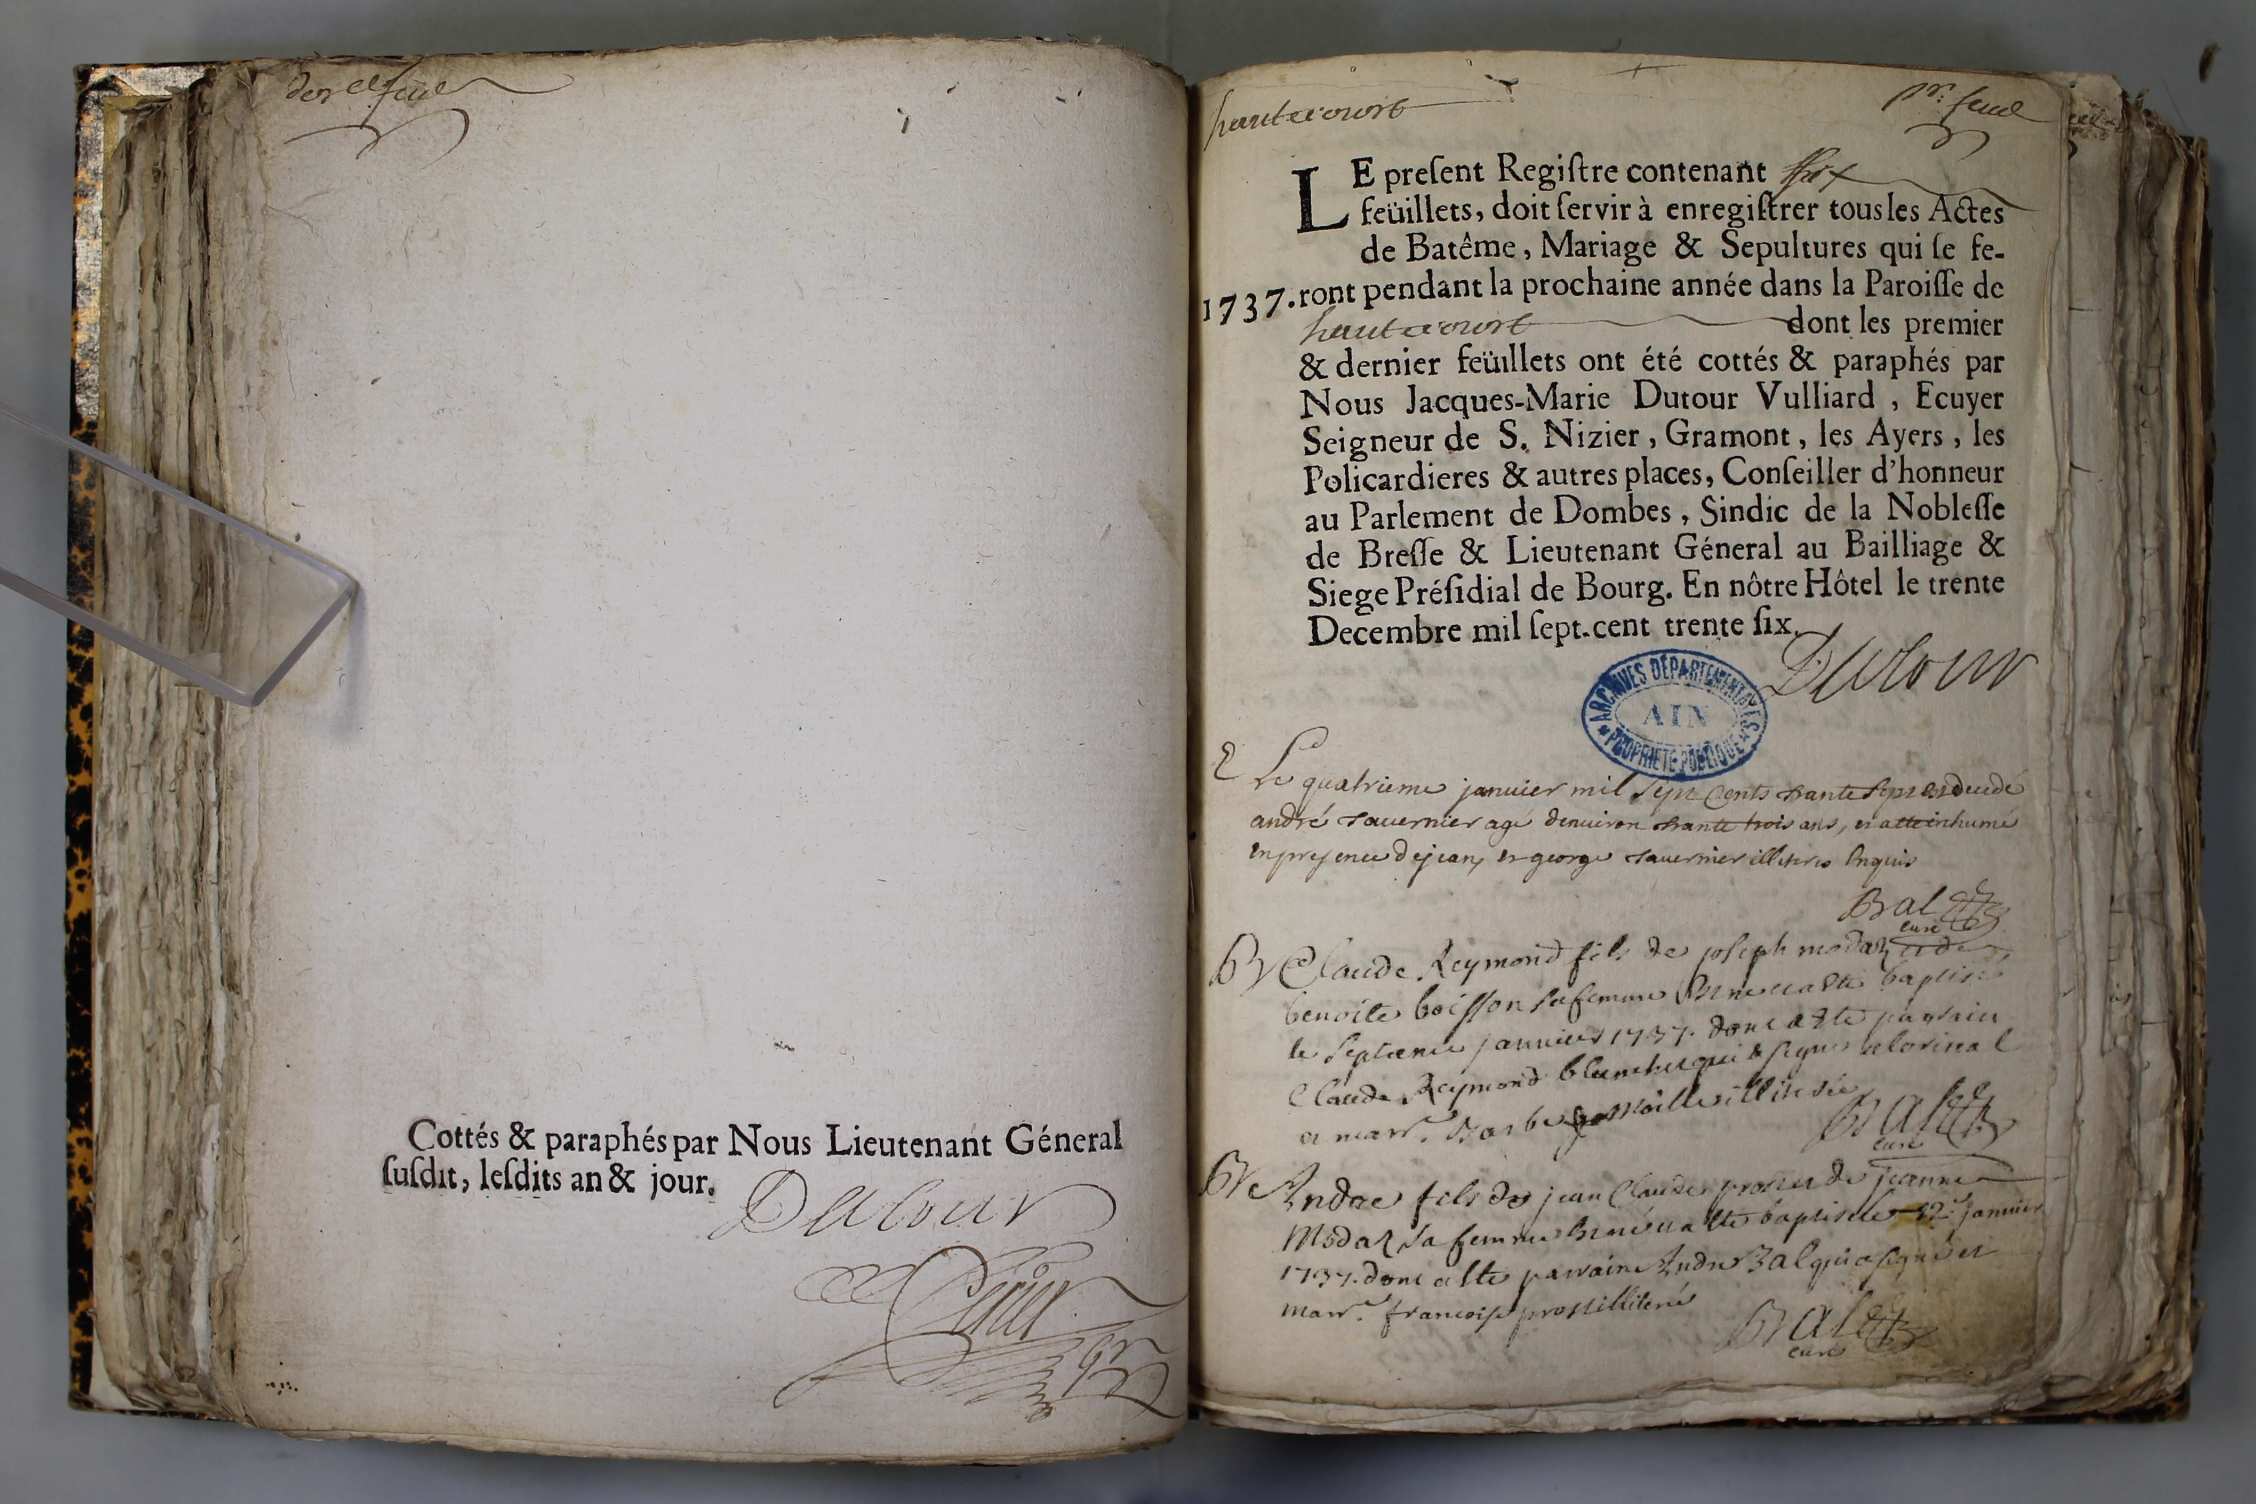 der feuil
Cottés & paraphés par Nous Lieutenant Géneral
ſuſdit, leſdits an & jour.
Dutour
hautecourt
pr. feuil
LE preſent Regiſtre contenant ſix
feüillets, doit ſervir à enregiſtrer tous les Actes
de Batême, Mariage & Sepultures qui ſe fe-
1737. ront pendant la prochaine année dans la Paroiſſe de
hautecourt dont les premier
& dernier feüillets ont été cottés & paraphés par
Nous Jacques-Marie Dutour Vulliard, Ecuyer
Seigneur de S. Nizier, Gramont, les Ayers, les
Policardieres & autres places, Conſeiller d'honneur
au Parlement de Dombes, Sindic de la Nobleſſe
de Breſſe & Lieutenant Géneral au Bailliage &
Siege Préſidial de Bourg. En nôtre Hôtel le trente
Decembre mil ſept-cent trente ſix.
Dutour
ARCHIVES DÉPARTEMENTALES
AIN
PROPRIÉTÉ PUBLIQUE
Le quatrieme januier mil sept Cents trante sept est decedé
andré tauernier agé denuiron trante trois ans, et a ette inhumé
en presence de jean, et george tauernier illiteres Enquis
Bal
curé
Bt Claude Reymond fils de joseph modaz et de
benoite boisson sa femme Bine a este baptisé
le septieme januier 1737. dont a este parrain
Claude Reymond blanchet qui a signe a lorinal
et marr.e Barbe illiterée
Bal
curé
Bt Andre fils de jean Claude prost et de jeanne
Modaz sa femme a este baptisé le 12.e januier
1737. dont a este parrain Andre Bal qui a signé et
marr.e francoise prost illiteré
Bal
curé